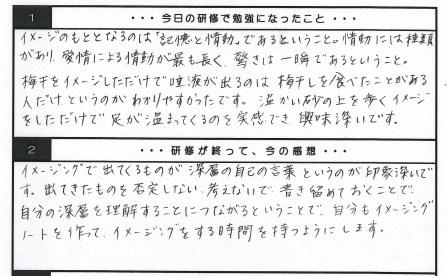 1 ・・・今日の研修で勉強になったこと・・・
イメージのもととなるのは「記憶と情動」であるということ。情動には種類
があり、愛情による情動が最も長く、驚きは一瞬であるということ。
梅干をイメージしただけで唾液が出るのは梅干しを食べたことがある
人だけというのがわかりやすかったです。温かい砂の上を歩くイメージ
をしただけで足が温まってくるのを実感でき、興味深いです。
2 ・・・研修が終って、今の感想・・・
イメージングで出てくるものが深層の自己の言葉というのが印象深いで
す。出てきたものを否定しない、考えないで、書き留めておくことで、
自分の深層を理解することにつながるということで、自分もイメージング
ノートを作って、イメージングをする時間を持つようにします。